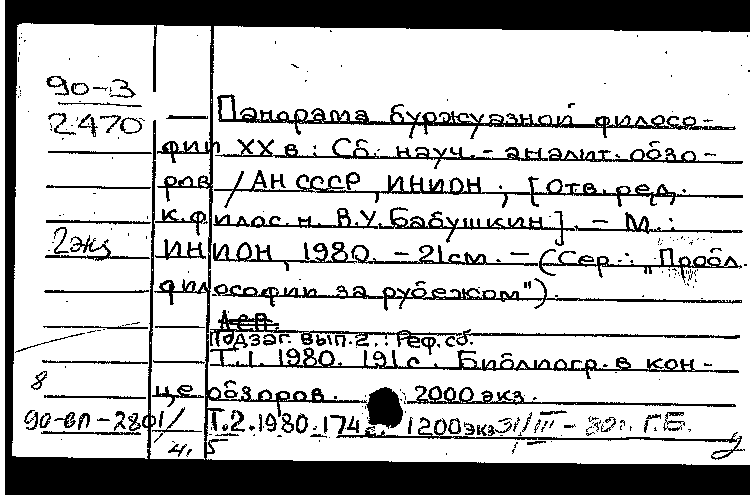 90-3
2470
Панорама буржуазной филосо-
фии XX в.: Сб. науч.-аналит. обзо-
ров / АН СССР, ИНИОН; [Отв. ред.
к.филос.н. В.У. Бабушкин]. - М.:
2 экз
ИНИОН, 1980. - 21 см. - (Сер.: "Пробл.
философии за рубежом").
Подзаг. вып. 2.: Реф. сб.
Т.1. 1980. 191 с. Библиогр. в кон-
8
це обзоров. 2000 экз.
90-вп-2801/
Т.2. 1980. 174 с. 1200 экз 31/III-80г. Г.Б.
ч. 5